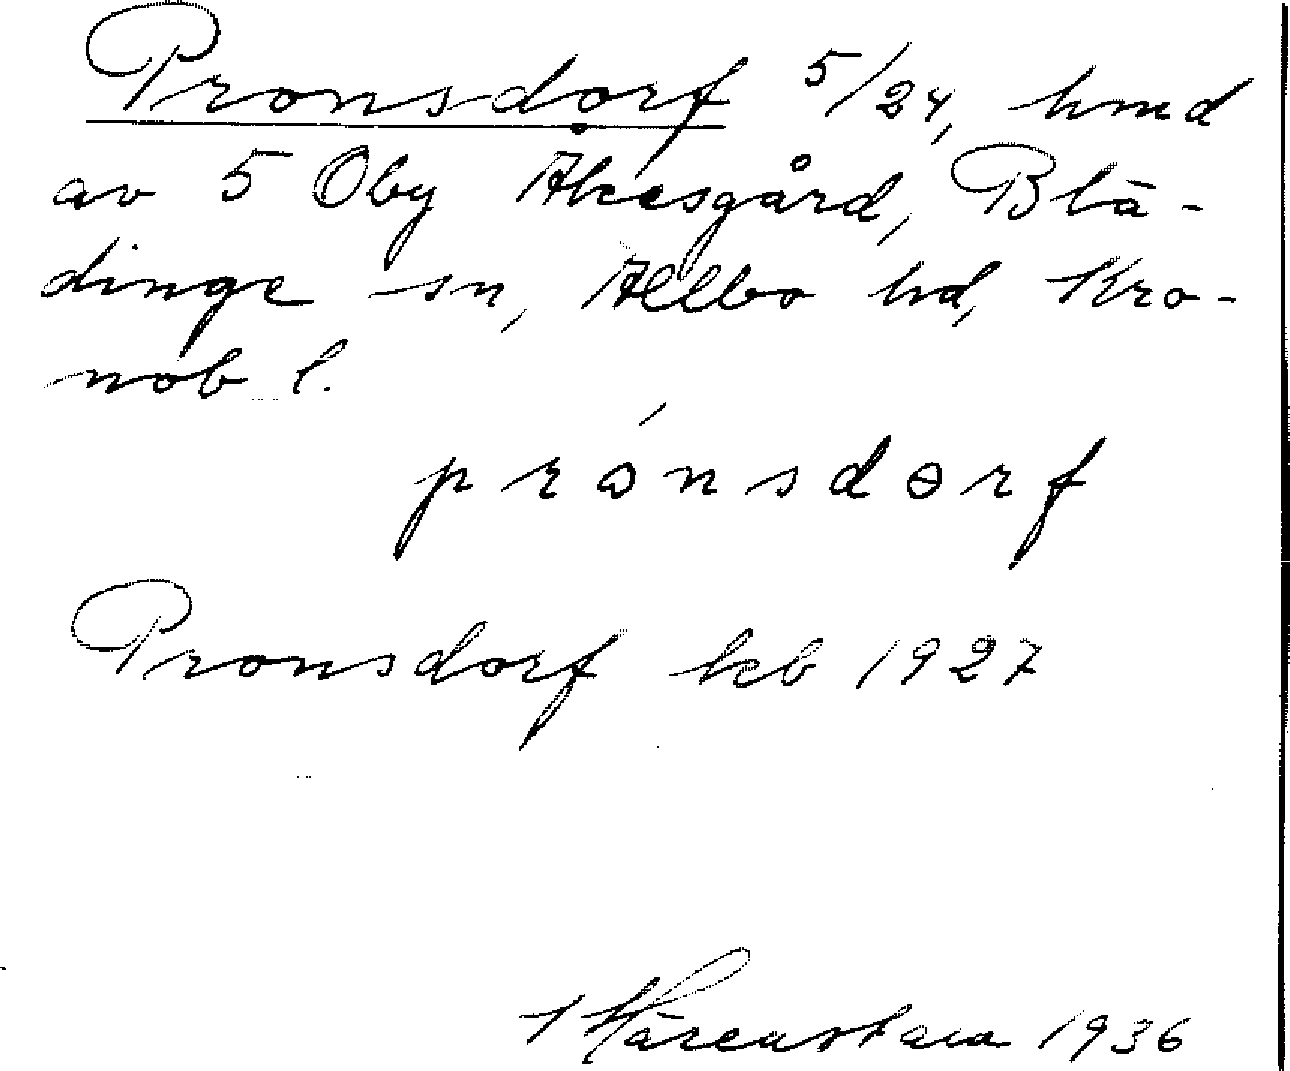 Pronsdorf 5/24, hmd
av 5 Oby Åkesgård, Blä-
dinge sn, Allbo hd, Kro-
nob l.
prónsdɵrf
Pronsdorf kb 1927
1936